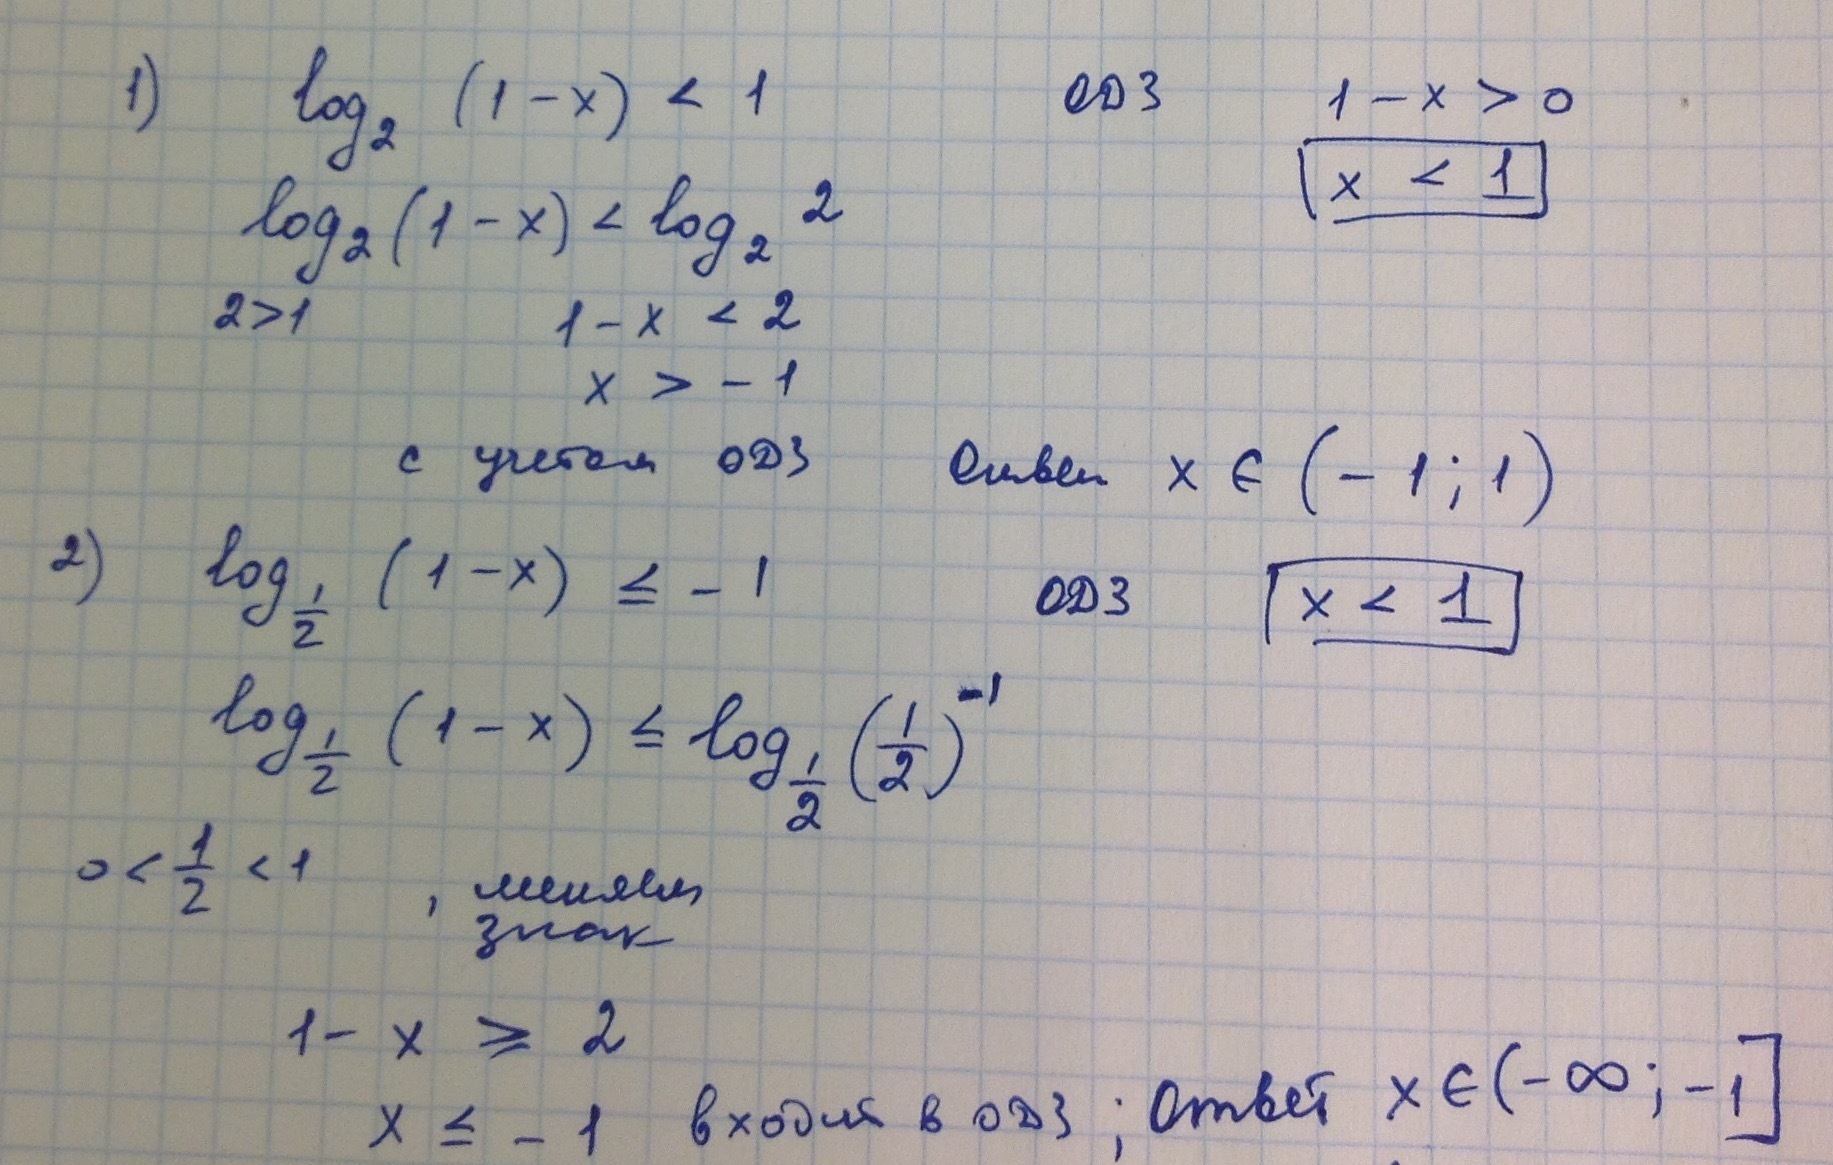 1) log₂ (1 - x) < 1 ОДЗ 1 - x > 0
x < 1
log₂ (1 - x) < log₂ 2
2>1 1 - x < 2
x > - 1
с учетом ОДЗ Ответ x ∈ (- 1 ; 1)
2) log_{1/2} (1 - x) ≤ - 1 ОДЗ x < 1
log_{1/2} (1 - x) ≤ log_{1/2} (1/2)^{-1}
0 < 1/2 < 1 , меняем
знак
1 - x ≥ 2
x ≤ - 1 входит в ОДЗ ; Ответ x ∈ (- ∞ ; -1]